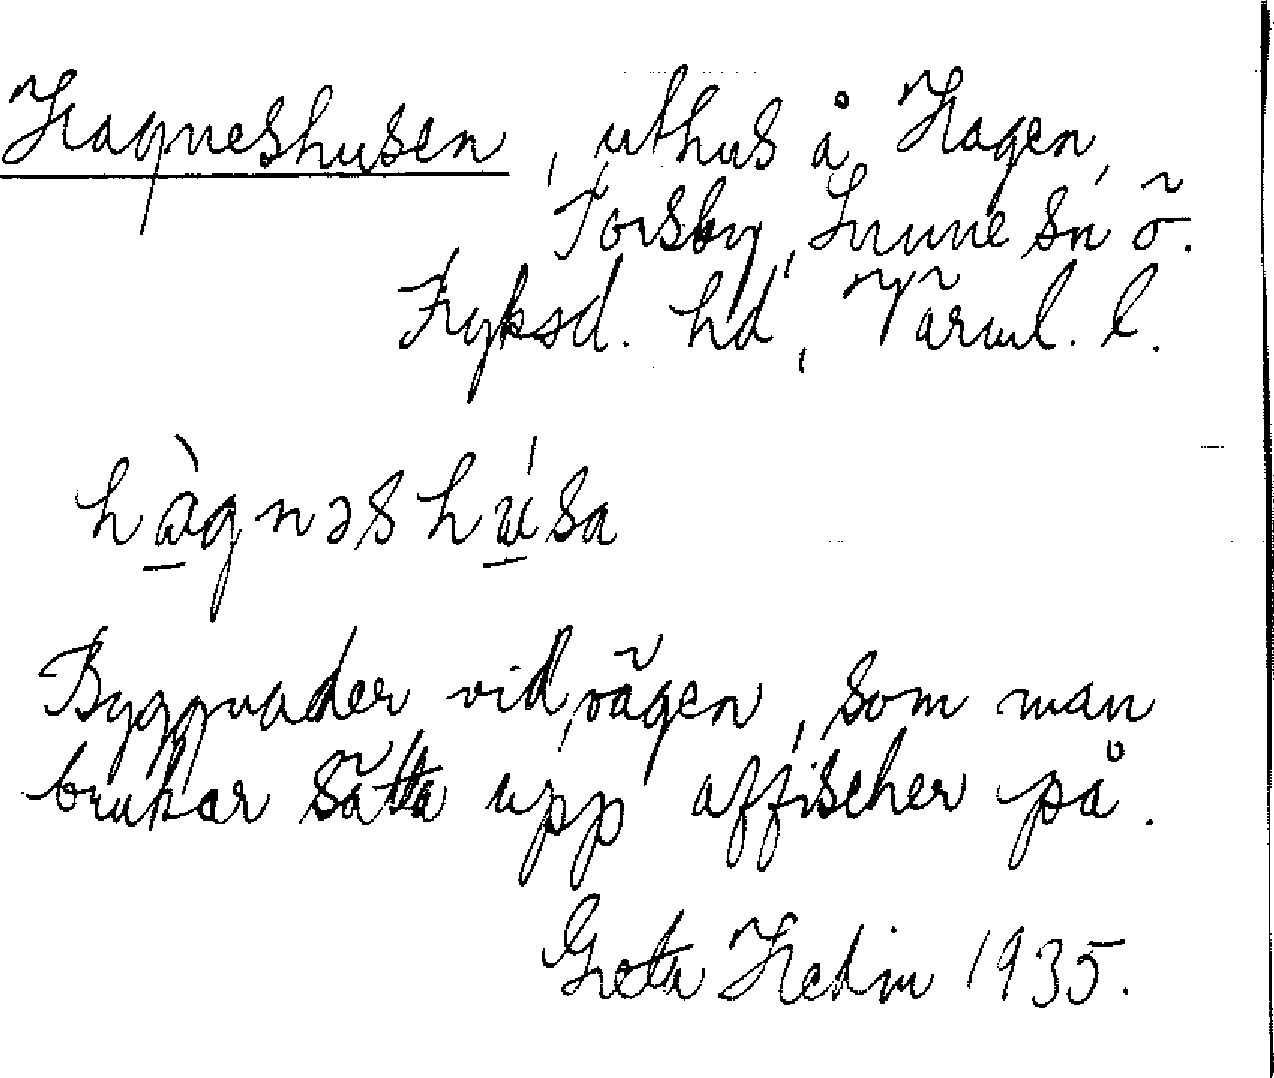 Hagneshusen, uthus å Hagen,
Torsby, Lysviks sn ö.
Fryksd. hd, Värml. l.
hàgnəshúsa
Byggnader vid vägen, som man
brukar sätta upp affischer på.
Greta Hedin 1935.